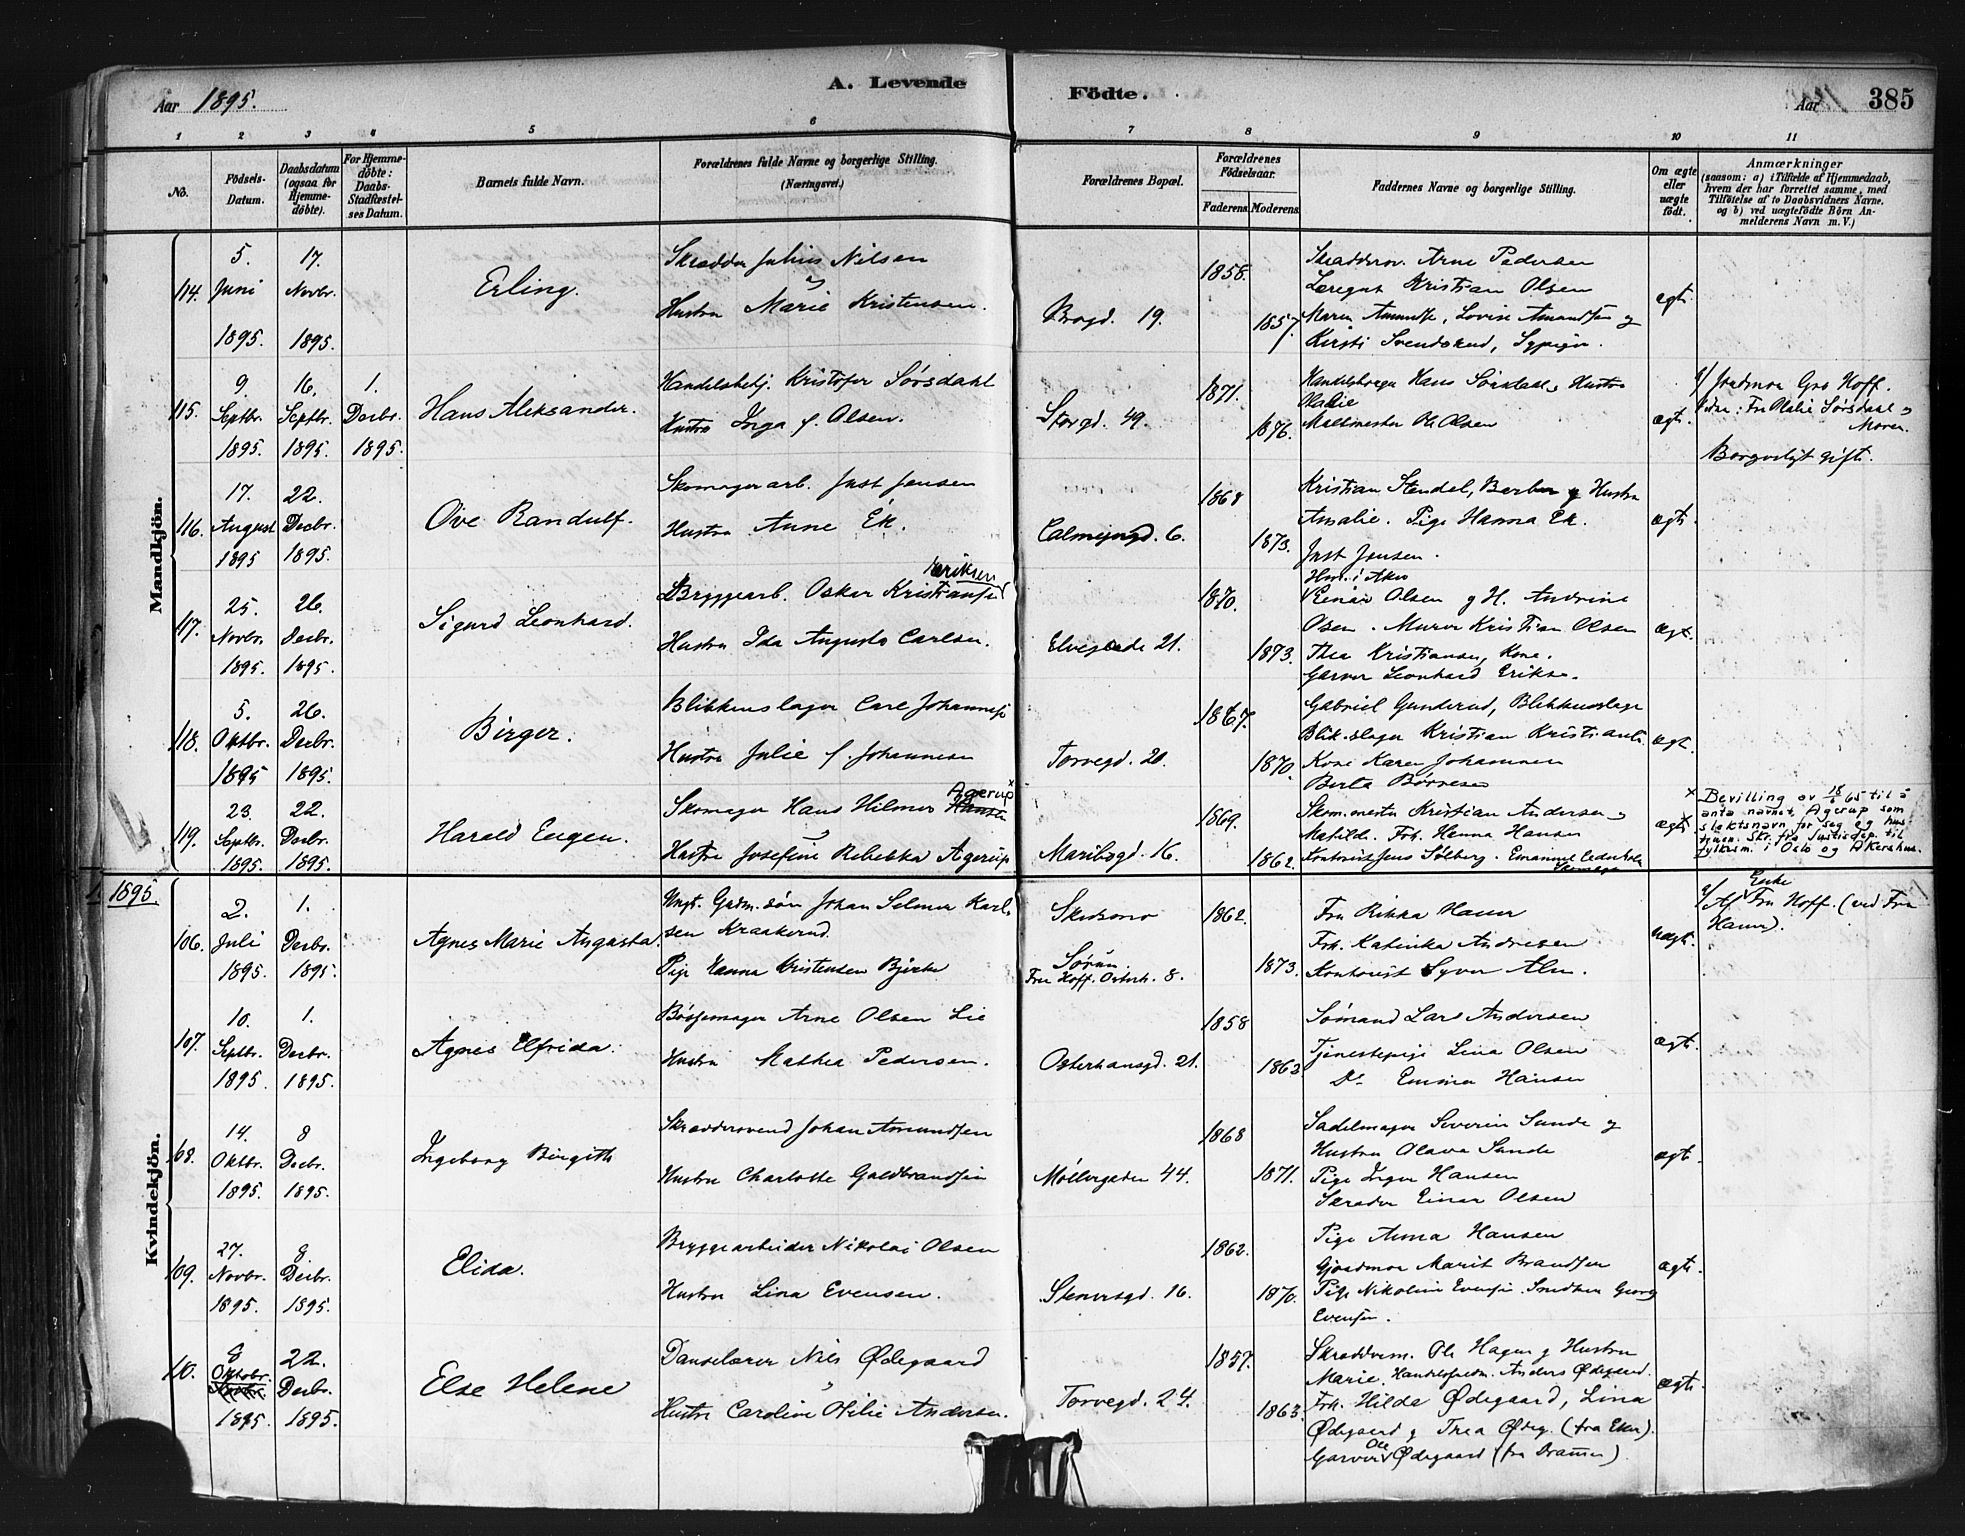 Aar 1895.
A. Levende
Födte.
Aar
385
1 2 3 4 5 6 7 8 9 10 11
No.
Födsels-Datum.
Daabsdatum (ogsaa for Hjemme-döbte).
For Hjemme-döbte: Daabs-Stadfæstel-ses Datum.
Barnets fulde Navn.
Forældrenes fulde Navne og borgerlige Stilling.
(Næringsvei.)
Forældrenes Bopæl.
Forældrenes Födselsaar.
Faderens
Moderens
Faddernes Navne og borgerlige Stilling.
Om ægte eller uægte födt.
Anmærkninger
(saasom: a) i Tilfælde af Hjemmedaab,
hvem der har forrettet samme, med
Tilföielse af to Daabsvidners Navne,
og b) ved uægtefödte Börn An-
melderens Navn m. V.)
Mandkjön.
114.
5. Juni 1895.
17. Novbr. 1895.
Erling.
Skrædder Julius Nilsen
og
Hustru Marie Kristensen.
Brogd. 19.
1858.
1857.
Skræddersv. Arne Pedersen
Læregut Kristian Olsen
Maren Amundse, Lovise Amundsen og
Kirsti Svendsrud, Sypiger.
ægte
115.
9. Septbr. 1895.
16. Septbr. 1895.
1. Decbr. 1895.
Hans Aleksander.
Handelsbetj. Kristofer Sørsdahl
Hustru Inga f. Olsen.
Storgd. 49.
1871.
1876.
Handelsborger Hans Sørsdal & Hustru
Malie
Maltmester Ole Olsen
ægte.
a/ Jordmor Gro Hoff.
Vidne: Fru Malie Sørsdal og
Moren.
Borgerligt gift.
116.
17. August 1895
22. Decbr. 1895.
Ove Randulf.
Skomagerarb. Just Jensen
Hustru Anne Ek.
Calmeyergd. 6.
1868
1873.
Kristian Stendel, Barber og Hustru
Amalie. Pige Hanna Ek.
Just Jensen.
ægte
117.
25. Novbr. 1895.
26. Decbr. 1895.
Sigurd Leonhard.
Eriksen
Bryggearb. Oskar Kristiansen
Hustru Ida Augusta Carlsen.
Elvegade 21.
1870.
1873.
Hm. i Aker
Einar Olsen g H. Andrine
Olsen. Murer Kristian Olsen
Thea Kristiansen, Kone.
Garver Leonhard Eriksen.
ægt.
118.
5. Oktbr. 1895
26. Decbr. 1895.
Birger.
Blikkenslager Carl Johannesen
Hustru Julie f. Johannesen
Torvegd. 20.
1867.
1870.
Gabriel Gunderud, Blikkenslager
Blik.slager Kristian Kristians.
Kone Karen Johannesen
Berta Børresen
ægt.
119.
23. Septbr. 1895.
22. Decbr. 1895.
Harald Eugen.
Agerup x
Skomager Hans Hilmer Hansen
Hustru Josefine Rebekka Agerup
Maribogd. 16.
1869.
1862.
Skom.mester Kristian Andersen og
Matilde. Frk. Hanna Hansen
Kontorist Jens Solberg. Emanuel Cederholm
Skomager
ægte
x Bevilling av 18/6 65 til å
anta navnet Agerup som
slektsnavn for seg og hus-
truen. Skr. fra Justisdep. til
fylkesm. i Oslo og Akershus.
1895.
Kvindekjön.
106.
2. Juli 1895.
1. Decbr. 1895.
Agnes Marie Augusta.
Ungk. Gaardm.søn Johan Selmer Karl-
sen Kraakerud.
Pige Hanna Kristensen Bjerke
Skedsmo
Sørum.
Fru Hoff. Osterh. 8.
1862.
1873.
Fru Rikka Hauer
Frk. Katinka Andresen
Kontorist Syver Alm.
uægt.
Enke
a/ Af Fru Hoff. (ved Fru
Hauer).
107.
10. Septbr. 1895
1. Decbr. 1895.
Agnes Elfrida.
Bøssemager Arne Olsen Lie
Hustru Mathea Pedersen.
Osterhausgd. 21.
1858
1862
Sømand Lars Andersen
Tjenestepige Lina Olsen
Do Emma Hansen
ægte.
108.
14. Oktbr. 1895.
8 Decbr. 1895.
Ingeborg Birgitte
Skræddersvend Johan Amundsen
Hustru Charlotte Guldbrandsen
Møllergaden 44.
1868
1871.
Sadelmager Severin Sunde og
Hustru Olava Sunde
Pige Inger Hansen
Skrædder Einar Olsen
ægte.
109.
27. Novbr. 1895.
8. Decbr. 1895.
Elida.
Bryggearbeider Nikolai Olsen
Hustru Lina Evensen.
Stenersgd. 16.
1862.
1870.
Pige Anna Hansen
Gjordmor Marit Brandsen
Pige Nikoline Evensen. Smedsv. Georg
Evensen.
ægte.
110.
8 Oktobr. 1895.
22. Decbr. 1895.
Else Helene
Danselærer Nils Ødegaard
Hustru Caroline Otilie Andersen.
Torvegd. 24.
1857.
1863.
Skræddem. Ole Hagen g Hustru
Marie. Handelsfuldm. Anders Ødegaard
Frk. Hilda Ødegaard, Lina
Ødegaard g Thea Ødeg. (fra Eker).
Garver Ole Ødegaard (fra Drammen).
ægte.